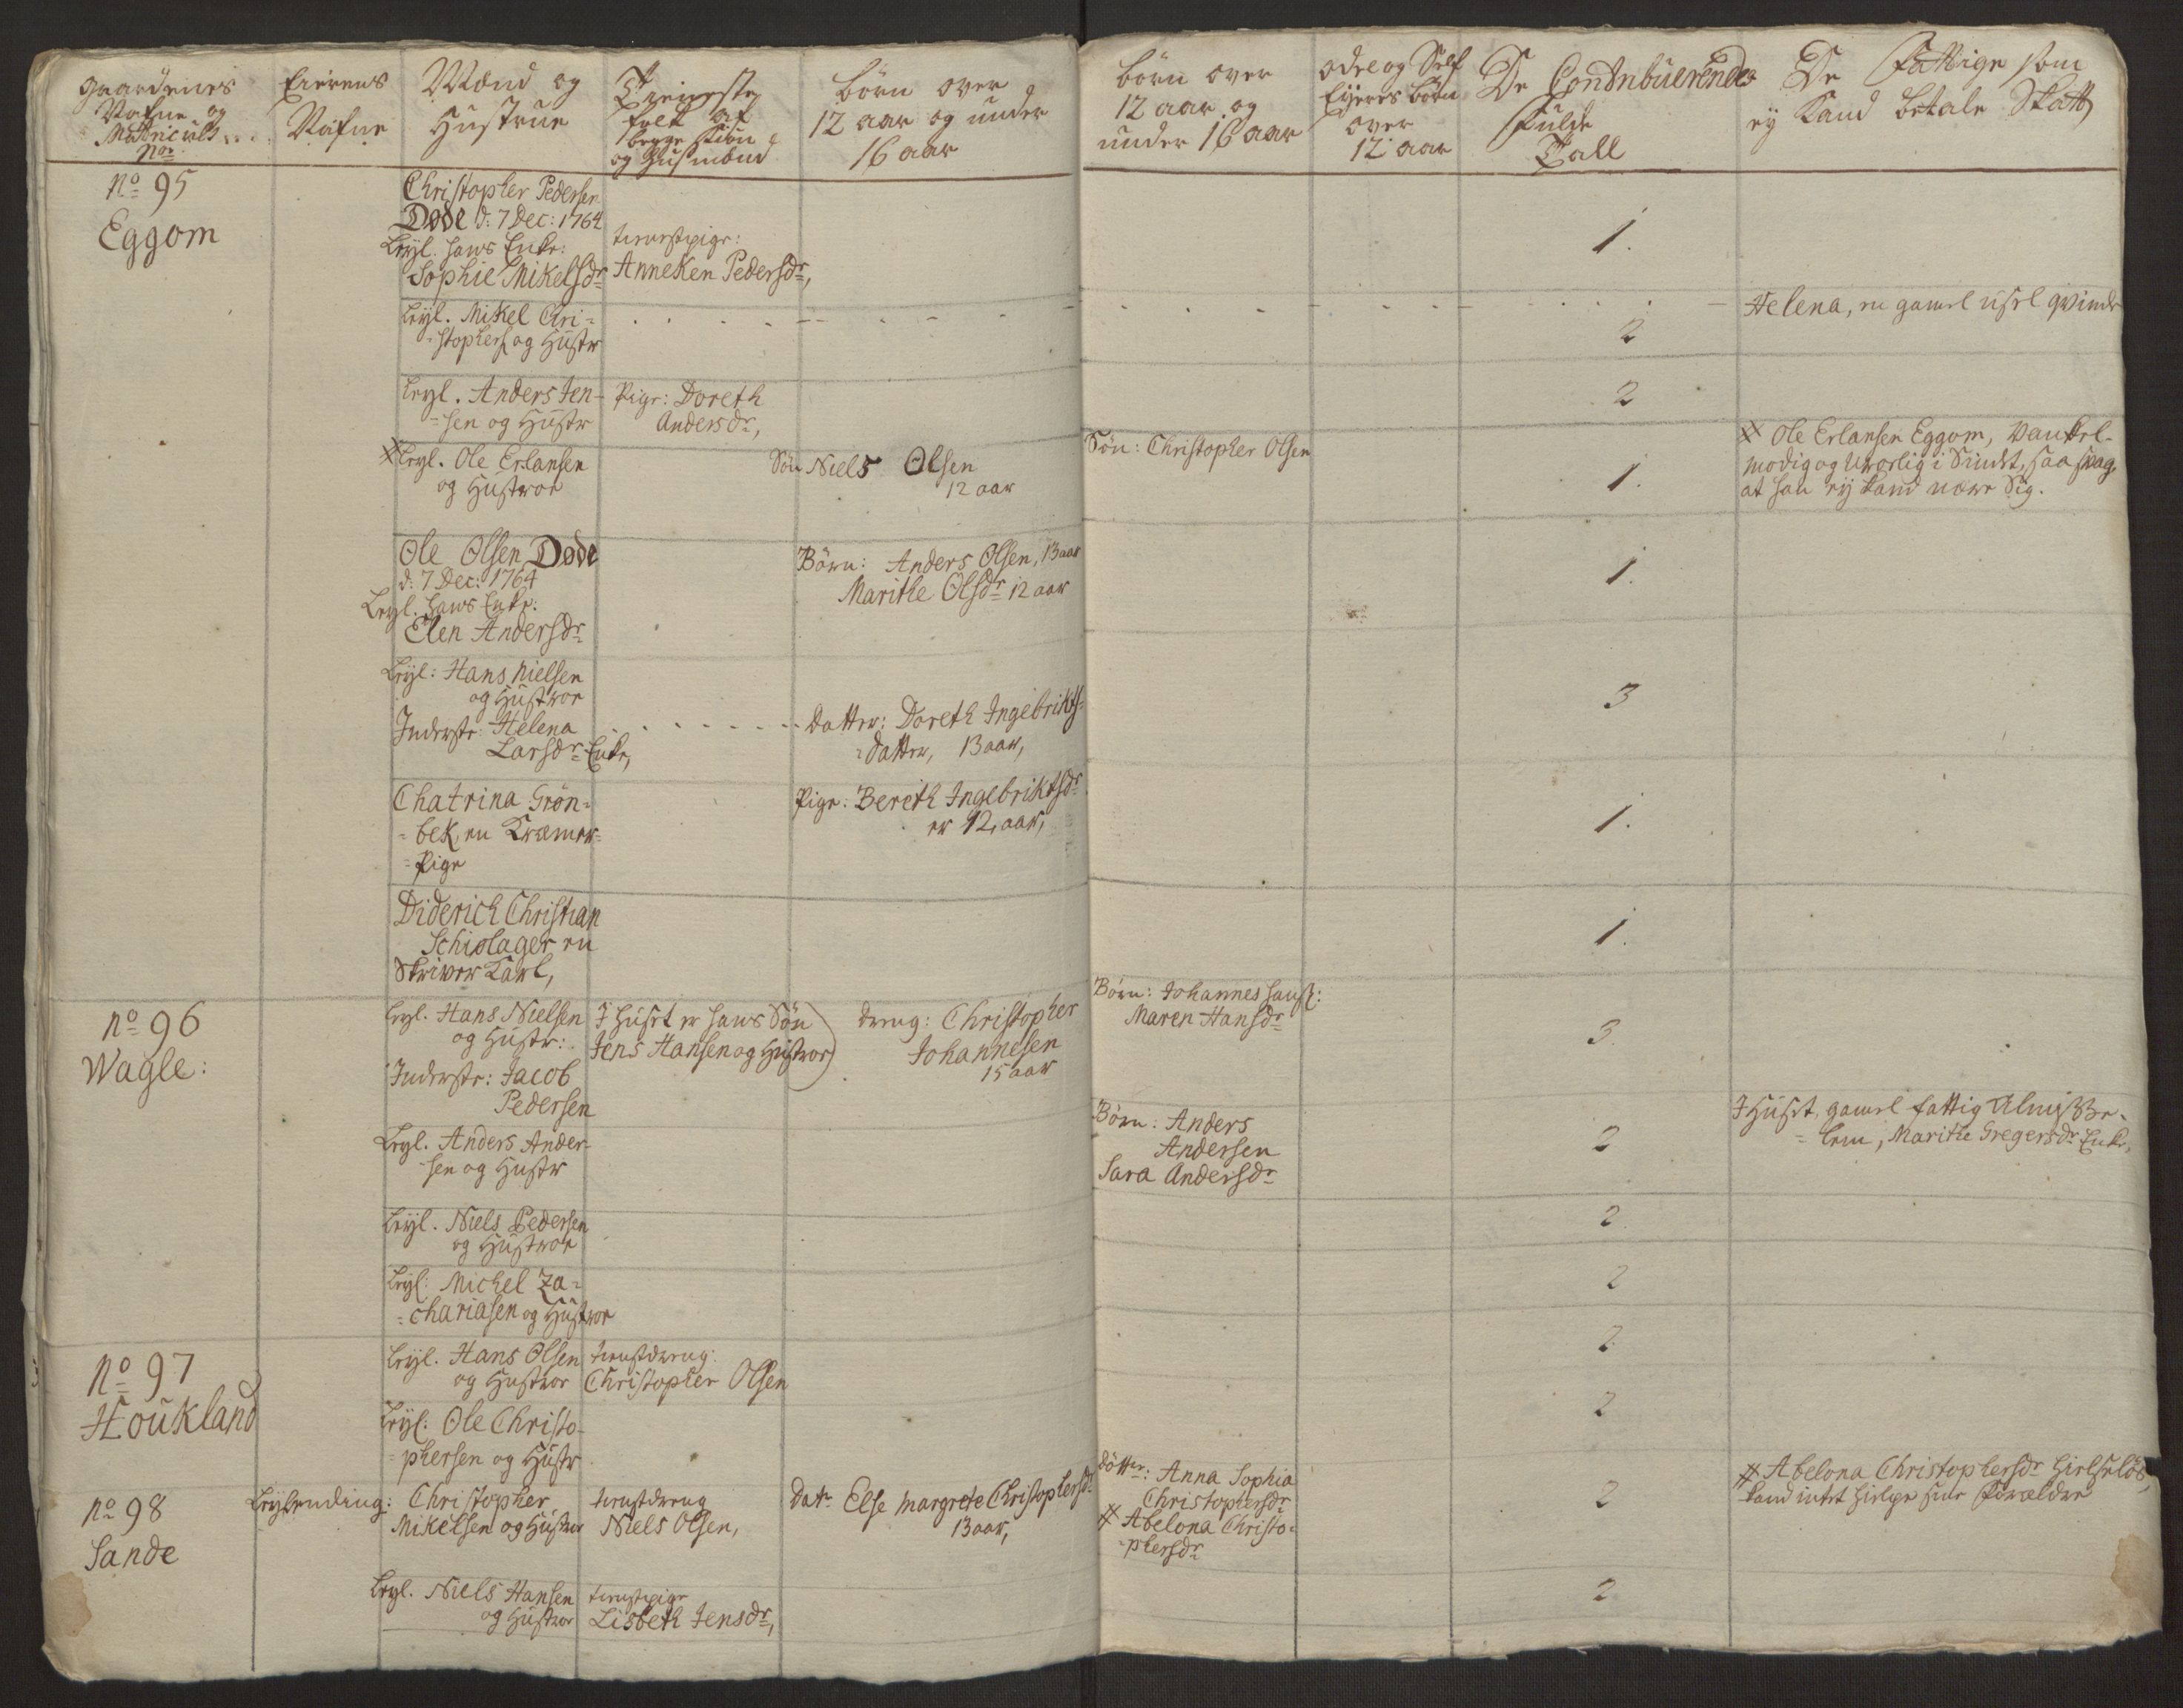 Gaardenes
Nafne og
Matriculs
No:
Eierens
Nafne
Mænd og
Hustrue
Tieneste
folk af
begge Kiøn
og Husmænd
Børn over
12 aar og under
16 aar
Børn over
12 aar og
under 16 aar
Odel og Self
Eyeres børn
over
12 aar
De Contribuerendes
Fulde
Tall
De Fattige som
ey Kand betale Skatt
No 95
Eggom
Christopher Pedersen
Døde d: 7 Dec: 1764
Leyl. hans Enke:
Sophie Mikelsdr
tienestpige:
Anneken Pedersdr,
1.
Leyl. Mikel Chri-
stophers og Hustr
2
Helena, en gamel usel qvinde
Leyl. Anders Jen-
sen og Hustr
Pige: Doreth
Andersdr,
2
# Leyl. Ole Erlansen
og Hustroe
Søn Niels Olsen
12 aar
Søn: Christopher Olsen
1.
# Ole Erlansen Eggom, Vankel-
modig og Urolig i Sindet, saa svag,
at han ey kand nære Sig.
Ole Olsen Døde
d: 7 Dec: 1764
Leyl. hans Enke:
Elen Andersdr
Børn: Anders Olsen, 13 aar
Marithe Olsdr 12 aar
1.
Leyl: Hans Nielsen
og Hustroe
Inderste: Helena
Larsdr Enke,
Datter: Doreth Ingebrikts-
datter, 13 aar,
3
Chatrina Grøn-
bek, en Kræmer-
Pige
Pige: Bereth Ingebriktsdr
er 12, aar,
1.
Diderich Christian
Schiolager en
Skriver Karl,
1.
No 96
Wagle:
Leyl. Hans Nielsen
og Hustr:
Inderste: Jacob
Pedersen
I Huset er hans Søn
Jens Hansen og Hustroe
dreng: Christopher
Johannesen
15 aar
Børn: Johannes Hans:
Maren Hansdr
3.
Leyl. Anders Ander-
sen og Hustr
Børn: Anders
Andersen
Sara Andersdr
2
I Huset, gamel fattig Almisse-
lem, Marithe Gregersdr Enke,
Leyl. Niels Pedersen
og Hustroe
2.
Leyl: Michel Za-
chariasen og Hustroe
2
No 97
Houkland
Leyl. Hans Olsen
og Hustroe
tienestdreng:
Christopher Olsen
2
Leyl: Ole Christo-
phersen og Hustr
2
No 98
Sande
Leylending:
Christopher
Mikelsen og Hustroe
tienestdreng
Niels Olsen,
Datr Else Margrete Christophersdr
13 aar,
Døtter: Anna Sophia
Christophersdr
# Abelona Christo-
phersdr
2
# Abelona Christophersdr Hielpeløs,
kand intet hielpe sine Forældre
Leyl. Niels Hansen
og Hustroe
tienestpige
Lisbeth Jensdr,
2